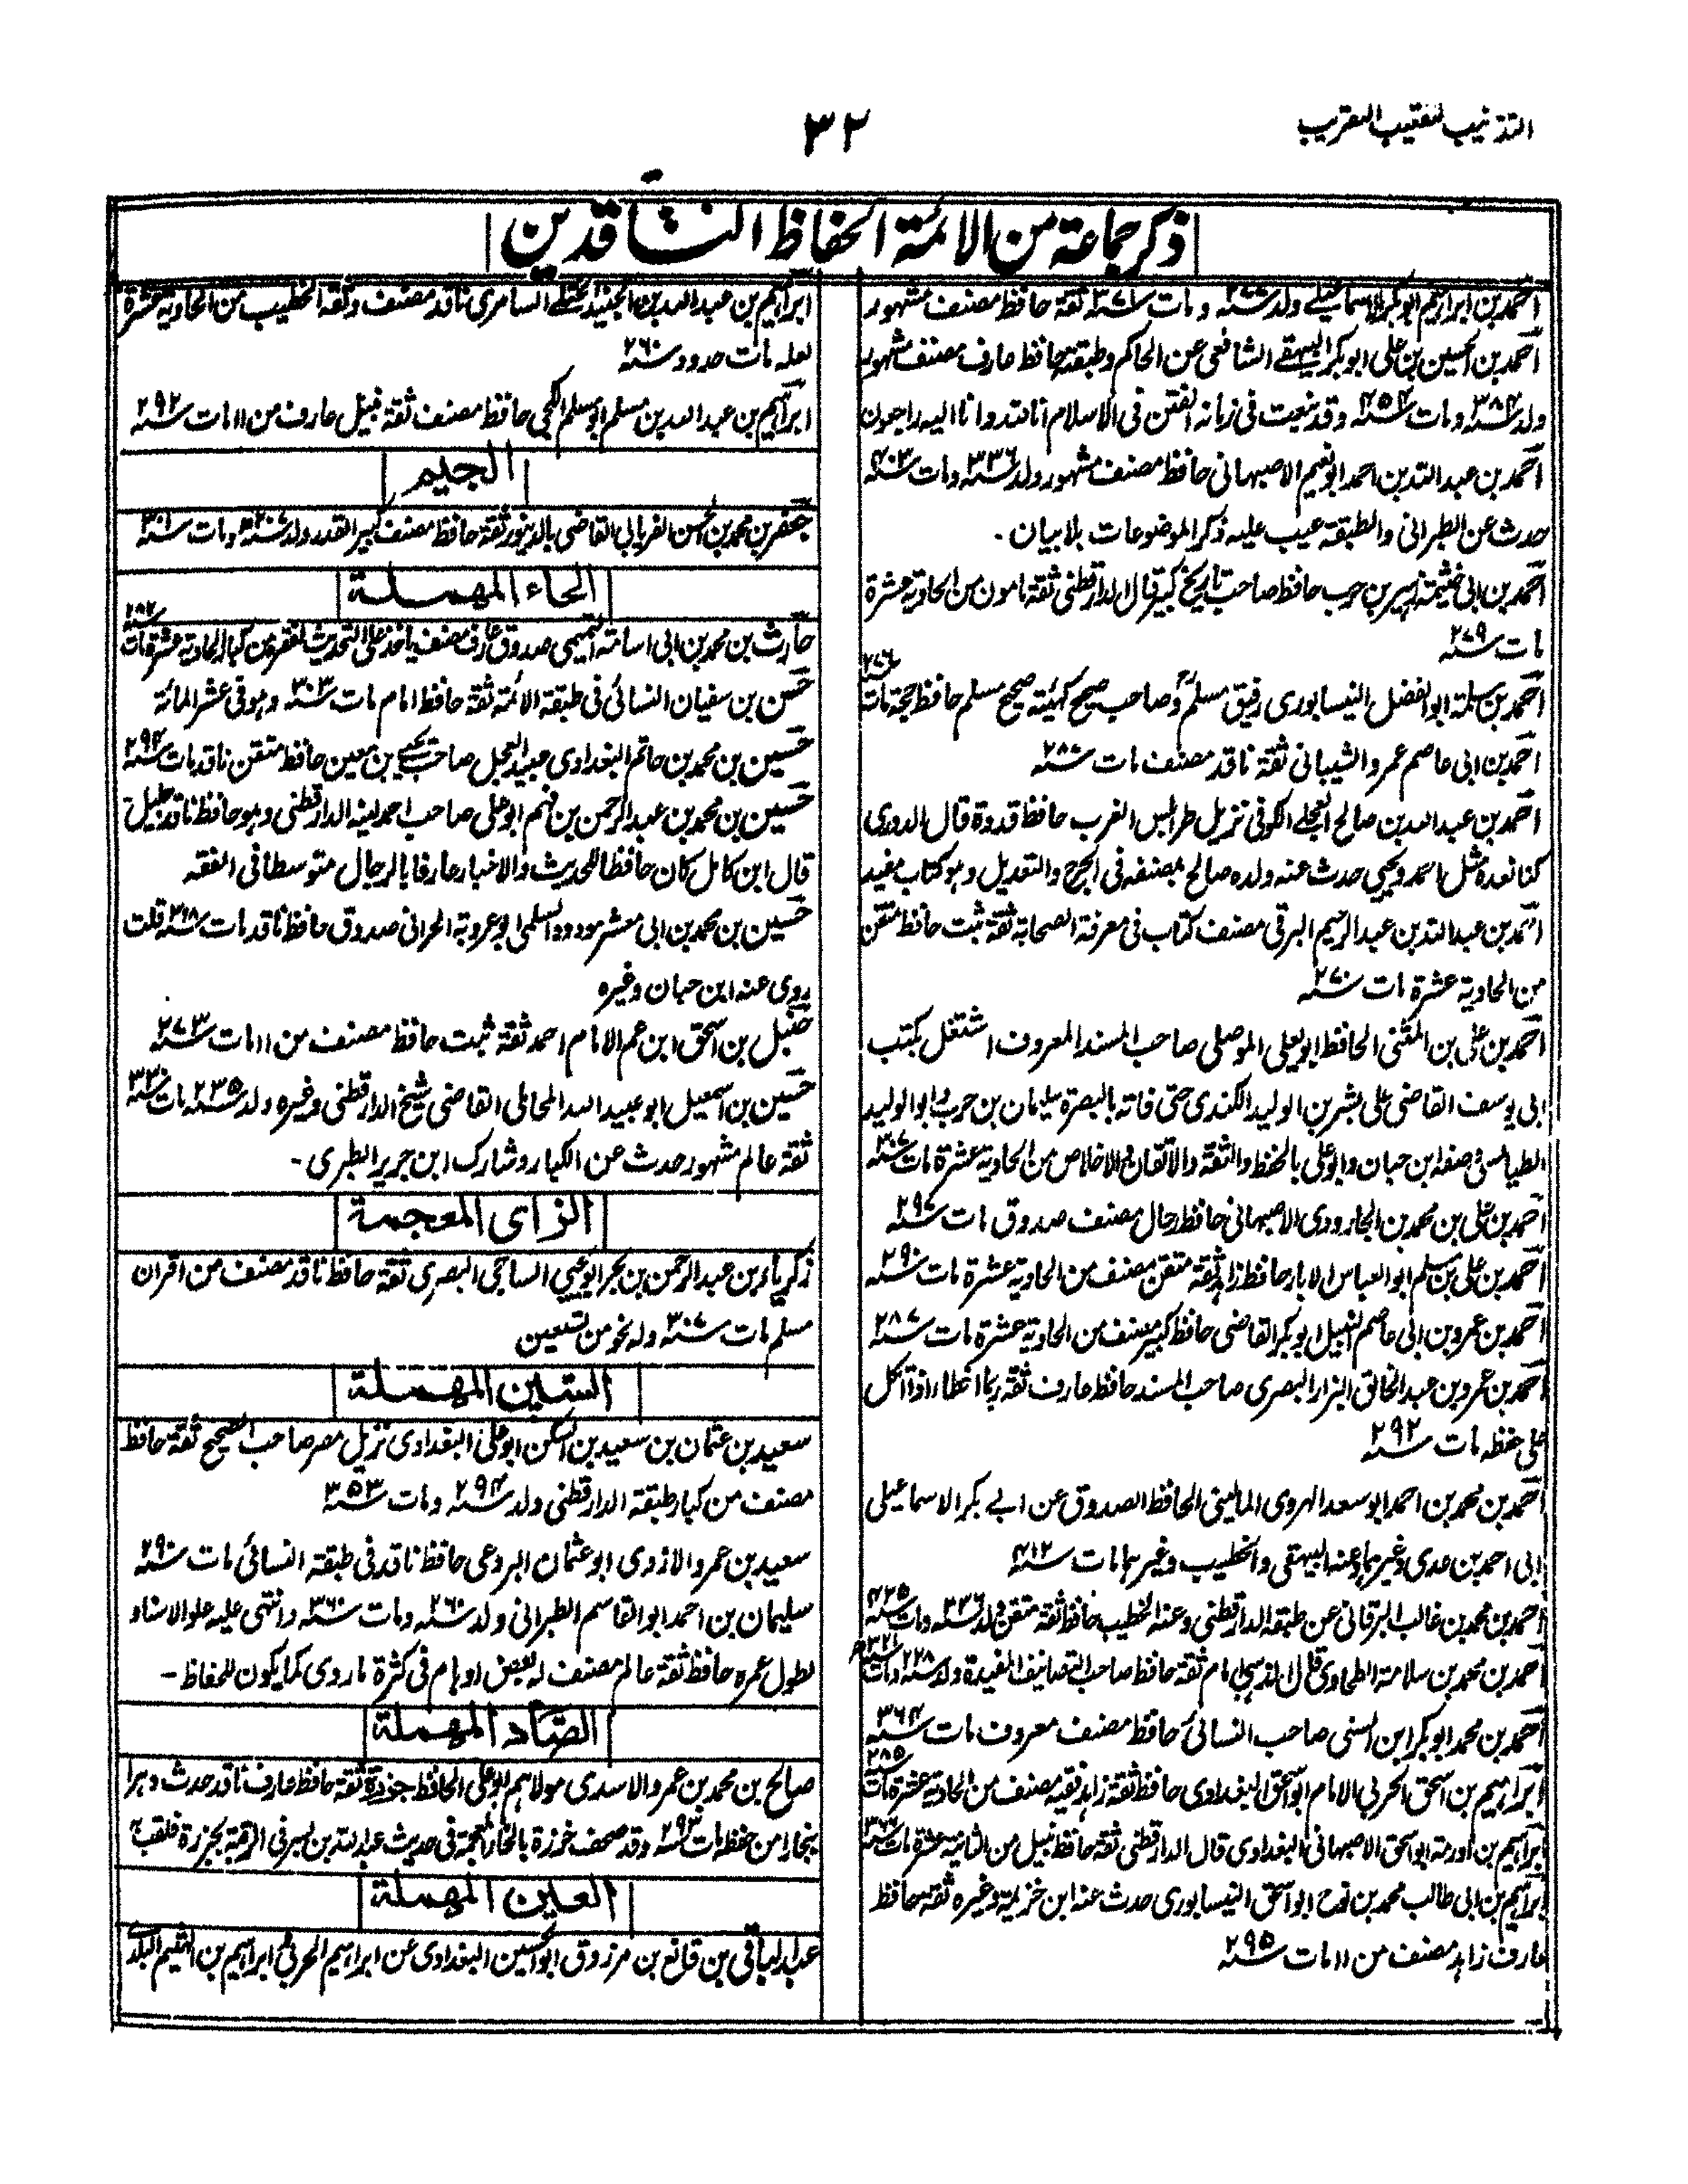 التذنيب لتعقيب التقريب
٣٢
ذكر جماعة من الائمة الحفاظ الناقدين
احمد بن ابراهيم ابو بكر الاسماعيلي ولد سنة ٢٧٧ ومات سنة ٣٧١ ثقة حافظ مصنف مشهور
احمد بن الحسين بن علي ابو بكر البيهقي الشافعي عن الحاكم وطبقته حافظ عارف مصنف مشهور
ولد سنة ٣٨٤ ومات سنة ٤٥٨ وقد نبعت في زمانه الفتن في الاسلام انا لله وانا اليه راجعون
احمد بن عبد الله بن احمد ابو نعيم الاصبهاني حافظ مصنف مشهور ولد سنة ٣٣٦ ومات سنة ٤٠٣
حدث عن الطبراني والطبقة عيب عليه ذكر الموضوعات بلا بيان.
احمد بن ابي خيثمة زهير بن حرب حافظ صاحب تاريخ كبير قال الدارقطني ثقة مامون من الحادية عشرة
مات سنة ٢٧٩
احمد بن سلمة ابو الفضل النيسابوري رفيق مسلم وصاحب صحيح كهيئة صحيح مسلم حافظ حجة مات سنة ٢٧٦
احمد بن ابي عاصم عمرو الشيباني ثقة ناقد مصنف مات سنة ٢٨٧
احمد بن عبد الله بن صالح العجلي الكوفي نزيل طرابلس الغرب حافظ قدوة قال الدوري
كنا نعده مثل احمد ويحيى حدث عنه ولده صالح بمصنفه في الجرح والتعديل وهو كتاب مفيد
احمد بن عبد الله بن عبد الرحيم البرقي مصنف كتاب في معرفة الصحابة ثقة ثبت حافظ متقن
من الحادية عشرة مات سنة ٢٧٠
احمد بن علي بن المثنى الحافظ ابو يعلى الموصلي صاحب المسند المعروف اشتغل بكتب
ابي يوسف القاضي على بشر بن الوليد الكندي حتى فاته بالبصرة سليمان بن حرب وابو الوليد
الطيالسي وصفه ابن حبان وابو علي بالحفظ والثقة والاتقان والاخلاص من الحادية عشرة مات سنة ٣٠٧
احمد بن علي بن محمد بن الجارودي الاصبهاني حافظ رحال مصنف صدوق مات سنة ٢٩٧
احمد بن علي بن مسلم ابو العباس الابار حافظ زاهد ثقة متقن مصنف من الحادية عشرة مات سنة ٢٩٠
احمد بن عمرو بن ابي عاصم النبيل ابو بكر القاضي حافظ كبير مصنف من الحادية عشرة مات سنة ٢٨٧
احمد بن عمرو بن عبد الخالق البزار البصري صاحب المسند حافظ عارف ثقة ربما اخطا اذا اتكل
على حفظه مات سنة ٢٩٢
احمد بن محمد بن احمد ابو سعد الهروي الماليني الحافظ الصدوق عن ابي بكر الاسماعيلي
ابي احمد بن عدي وغيرهما وعنه البيهقي والخطيب وغيرهما مات سنة ٤١٢
احمد بن محمد بن غالب البرقاني عن طبقة الدارقطني وعنه الخطيب حافظ ثقة متقن ولد سنة ٣٣٦ ومات سنة ٤٢٥
احمد بن محمد بن سلامة الطحاوي قال الذهبي امام ثقة حافظ صاحب التصانيف المفيدة ولد سنة ٢٢٨ ومات سنة ٣٢١
احمد بن محمد ابو بكر ابن السني صاحب النسائي حافظ مصنف معروف مات سنة ٣٦٤
ابراهيم بن اسحق الحربي الامام ابو اسحق البغدادي حافظ ثقة زاهد فقيه مصنف من الحادية عشرة مات سنة ٢٨٥
ابراهيم بن اورمة ابو اسحق الاصبهاني البغدادي قال الدارقطني ثقة حافظ نبيل من الثانية عشرة مات سنة
ابراهيم بن ابي طالب محمد بن نوح ابو اسحق النيسابوري حدث عنه ابن خزيمة وغيره ثقة حافظ
عارف زاهد مصنف من ١١ مات سنة ٢٩٥
ابراهيم بن عبد الله بن الجنيد الختلي السامري ناقد مصنف وثقه الخطيب من الحادية عشرة
لعله مات حدود سنة ٢٦٠
ابراهيم بن عبد الله بن مسلم ابو مسلم الكجي حافظ مصنف ثقة نبيل عارف من ١١ مات سنة ٢٩٢
الجيم
جعفر بن محمد بن الحسن الفريابي القاضي بالدينور ثقة حافظ مصنف كبير القدر ولد سنة ٢٠٧ ومات سنة ٣٠١
الحاء المهملة
حارث بن محمد بن ابي اسامة التميمي صدوق عارف مصنف ياخذ على التحديث لفقره من كبار الحادية عشرة مات سنة ٢٨٢
حسن بن سفيان النسائي في طبقة الائمة ثقة حافظ امام مات سنة ٣٠٣ وهو في عشر المائة
حسين بن محمد بن حاتم البغدادي عبيد العجل صاحب يحيى بن معين حافظ متقن ناقد مات سنة ٢٩٤
حسين بن محمد بن عبد الرحمن بن فهم ابو علي صاحب احمد لينه الدارقطني وهو حافظ ناقد جليل
قال ابن كامل كان حافظا للحديث والاخبار عارفا بالرجال متوسطا في الفقه
حسين بن محمد بن ابي معشر مودود السلمي ابو عروبة الحراني صدوق حافظ ناقد مات سنة ٣١٨ قلت
روى عنه ابن حبان وغيره
حنبل بن اسحق ابن عم الامام احمد ثقة ثبت حافظ مصنف من ١١ مات سنة ٢٧٣
حسين بن اسمعيل ابو عبيد الله المحاملي القاضي شيخ الدارقطني وغيره ولد سنة ٢٣٥ مات سنة ٣٣٠
ثقة عالم مشهور حدث عن الكبار وشارك ابن جرير الطبري -
الزاى المعجمة
زكرياء بن عبد الرحمن بن بحر ابو يحيى الساجي البصري ثقة حافظ ناقد مصنف من اقران
مسلم مات سنة ٣٠٧ وله نحو من تسعين
السين المهملة
سعيد بن عثمان بن سعيد بن السكن ابو علي البغدادي نزيل مصر صاحب الصحيح ثقة حافظ
مصنف من كبار طبقة الدارقطني ولد سنة ٢٩٤ ومات سنة ٣٥٣
سعيد بن عمرو الازدي ابو عثمان البردعي حافظ ناقد في طبقة النسائي مات سنة ٢٩٠
سليمان بن احمد ابو القاسم الطبراني ولد سنة ٢٦٠ ومات سنة ٣٦٠ وانتهى عليه علو الاسناد
لطول عمره حافظ ثقة عالم مصنف له بعض اوهام في كثرة ما روى كما يكون للحفاظ -
الصاد المهملة
صالح بن محمد بن عمرو الاسدي مولاهم ابو علي الحافظ جزرة ثقة حافظ عارف ناقد حدث دهرا
ببخارا من حفظه مات سنة ٢٩٣ وقد صحف خرزة بالخاء المعجمة في حديث عبد الله بن بسر في الرقية بجزرة فلقب به
العين المهملة
عبد الباقي بن قانع بن مرزوق ابو الحسين البغدادي عن ابراهيم الحربي ابراهيم بن الهيثم البلدي